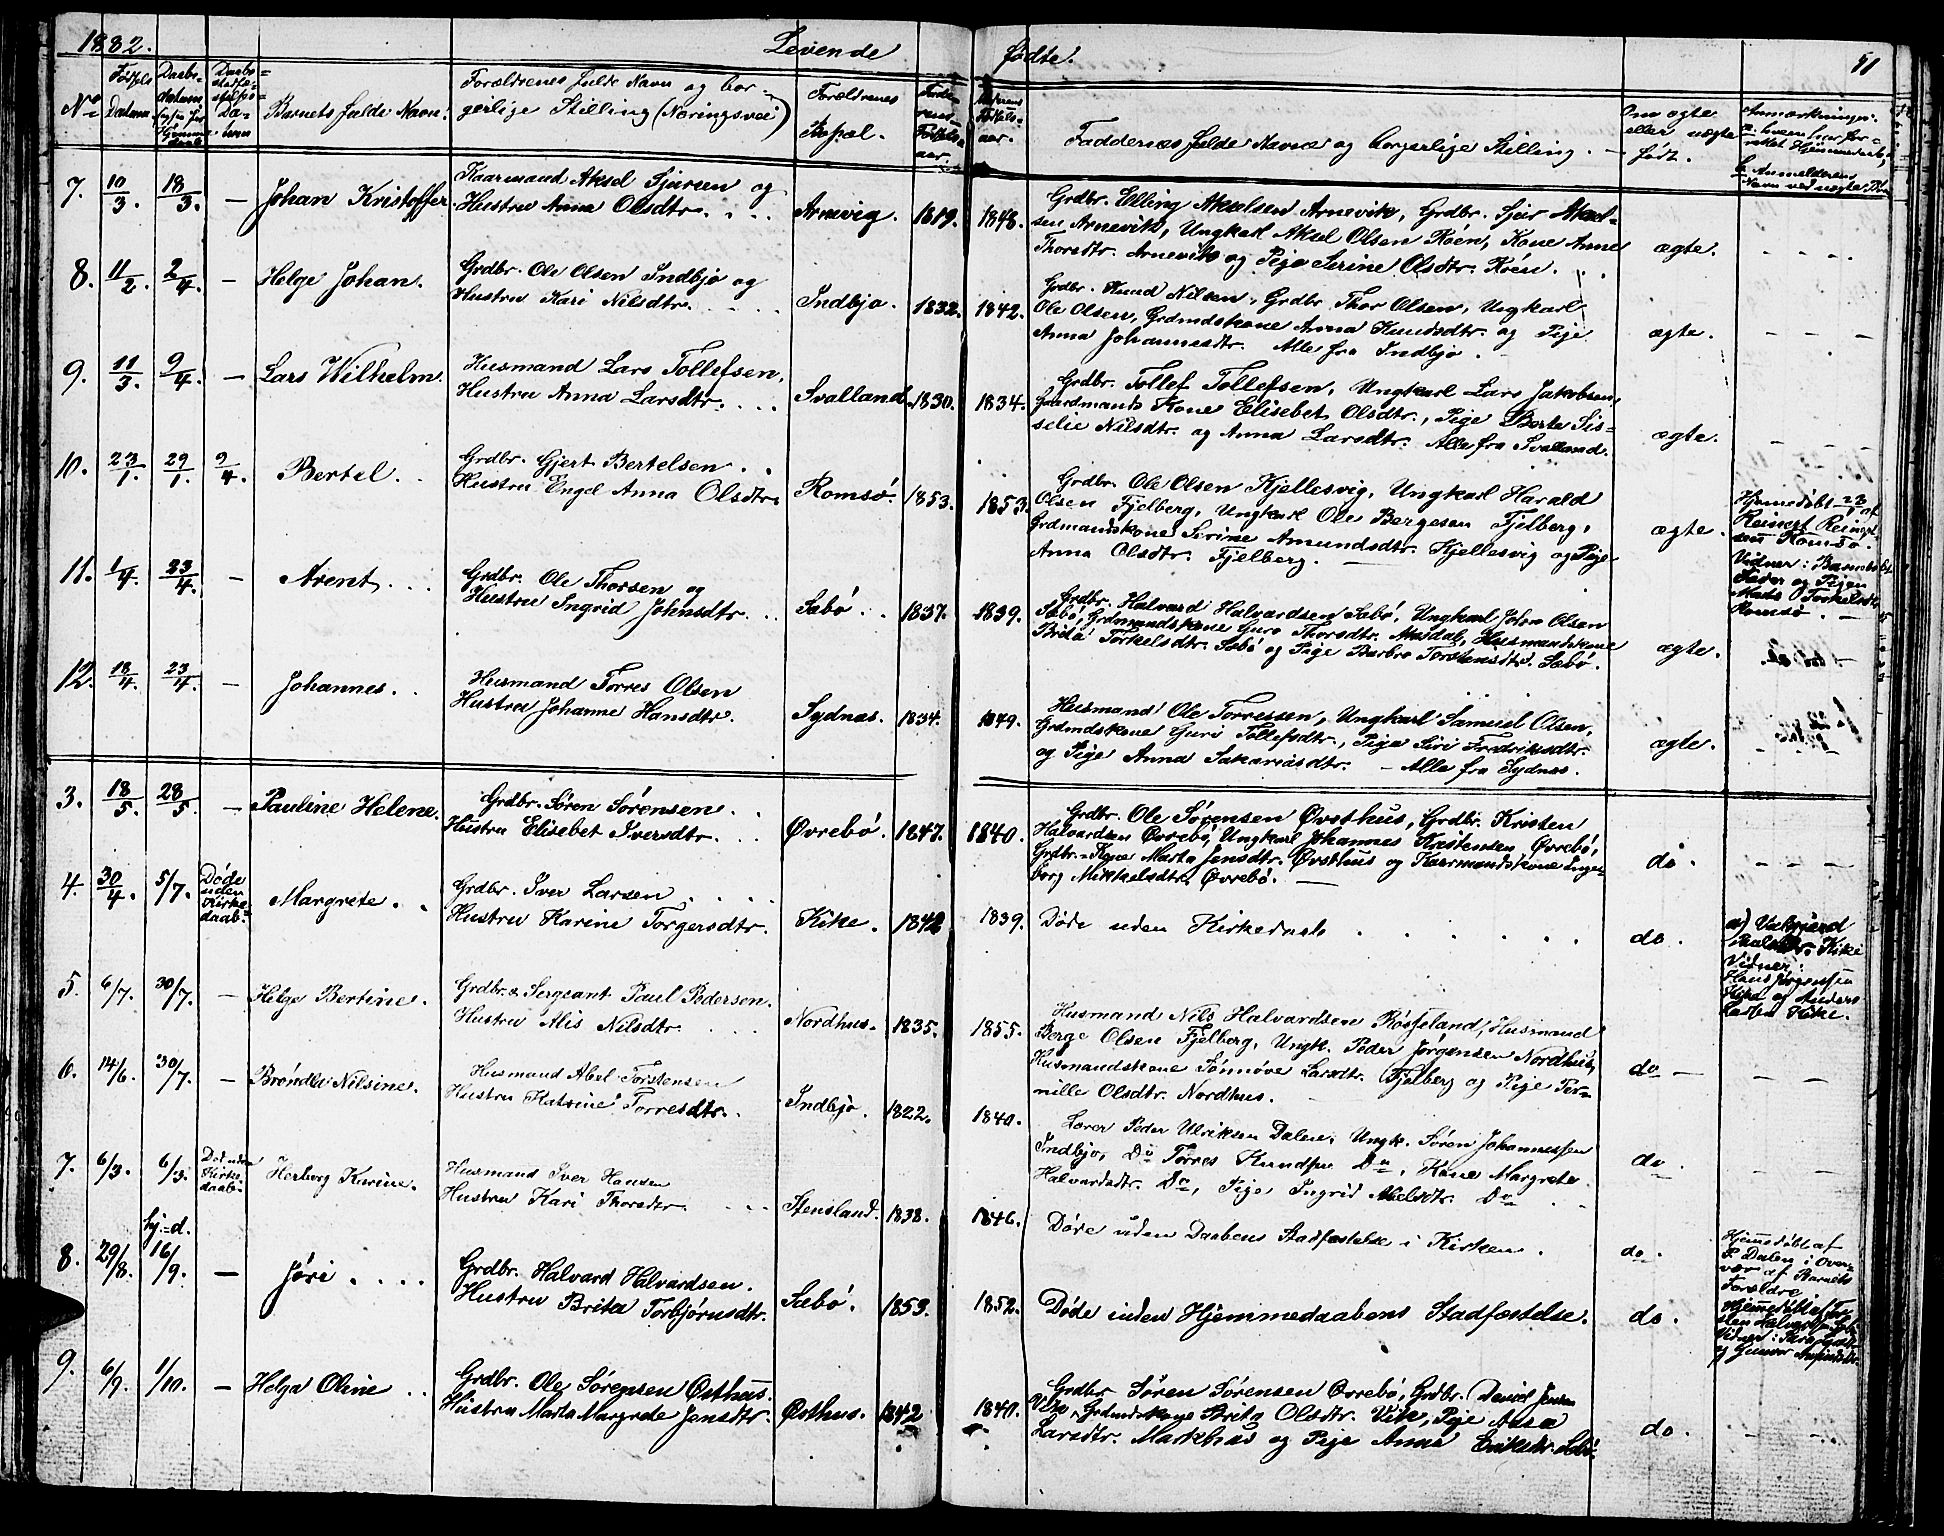 1882. Levende fødte. 51
No Fødsels Datum Daabs- datum Barnets fulde Navn. Forældrenes fulde Navn og bor-
gerlige Stilling (Næringsvei) Forældrenes Bopæl. Faderens Fødsels- aar. Moderens Fødsels- aar. Faddernes fulde Navne og borgerlige Stilling. Om ægte eller uægte født. Anmærkninger.
7. 10/3 18/3. — Johan Kristoffer. Kaarmand Aksel Sjursen og
Hustru Anna Olsdtr. Arnevig. 1819. 1848. Grdbr. Elling Akselsen Arnevik, Grdbr. Sjur Aksel-
sen Arnevik, Ungkarl Aksel Olsen Røen, Kone Anne
Thoresdtr. Arnevik og Pige Serine Olsdtr. Røen. ægte.
8. 11/2. 2/4. — Helge Johan. Grdbr. Ole Olsen Indbjo og
Hustru Kari Nilsdtr. Indbjo. 1832. 1842. Grdbr. Knud Nilsen, Grdbr. Thor Olsen, Ungkarl
Ole Olsen, Grdmdskone Anna Knudsdtr. og Pige
Anna Johannesdtr. Alle fra Indbjo. ægte.
9. 11/3. 9/4. — Lars Wilhelm. Husmand Lars Tollefsen,
Hustru Anna Larsdtr. Svalland. 1830. 1834. Grdbr. Tollef Tollefsen, Ungkarl Lars Jakobsen,
Gaardmands Kone Elisebet Olsdtr., Pige Berte Sis-
selie Nilsdtr. og Anna Larsdtr. Alle fra Svalland. ægte.
10. 23/1. 29/1. 9/4. Bertel. Grdbr. Gjert Bertelsen
Hustru Engel Anna Olsdtr. Romsø. 1853. 1853. Grdbr. Ole Olsen Kjellesvig, Ungkarl Harald
Olsen Fjelberg, Ungkarl Ole Bergesen Fjelberg,
Grdmandskone Serine Amundsdtr. Kjellesvig og Pige
Anna Olsdtr. Fjelberg. ægte. Hjemedøbt 23/1 af
Reinert Reinert-
sen Romsø.
Vidner: Barnets
Fader og Pigen
Torkelsdtr.
Romsø.
11. 1/4. 23/4. — Arent. Grdbr. Ole Thorsen og
Hustru Ingrid Johnsdtr. Sæbø. 1837. 1839. Grdbr. Halvard Halvardsen Sæbø, Ungkarl John Olsen
Sæbø, Grdmandskone Guro Thorsdtr. Husmandskone
Brita Torkelsdtr. Sæbø og Pige Barbro Torstensdtr. Sæbø. ægte.
12. 18/4. 23/4. — Johannes. Husmand Torres Olsen
Hustru Johanne Hansdtr. Sydnæs. 1834. 1849. Husmand Ole Torressen, Ungkarl Samuel Olsen,
Grdmdskone Guri Tollefsdtr., Pige Siri Fredriksdtr.
og Pige Anna Sakariasdtr. — Alle fra Sydnæs. ægte.
3. 18/5. 28/5. — Pauline Helene. Grdbr. Søren Sørensen
Hustru Elisebet Iversdtr. Øvrebø. 1847. 1840. Grdbr. Ole Sørensen Øvsthus, Grdbr. Kristen
Halvardsen Øvrebø, Ungkarl Johannes Kristensen Øvrebø,
Grdbr.-Kone Marta Jensdtr. Øvsthus og Kaarmandskone Inge-
borg Mikkelsdtr. Øvrebø. do.
4. 30/4. 5/7. Døde uden Kirke- daab. Margrete. Grdbr. Iver Larsen
Hustru Karine Torgersdtr. Kike. 1842 1839. Døde uden Kirkedaab do. Vidner:
Hans Jørgensen
Kike og Anders
Larsen Kike.
5. 6/7. 30/7. — Helge Bertine. Grdbr. & Sergeant Paul Pedersen.
Hustru Alis Nilsdtr. Nordhus. 1835. 1855. Husmand Nils Halvardsen Røsseland, Husmand
Berge Olsen Fjelberg, Ungk. Peder Jørgensen Nordhus,
Husmandskone Sønnøve Larsdtr. Fjelberg og Pige Per-
nille Olsdtr. Nordhus. do —
6. 14/6. 30/7. — Brøndla Nilsine. Husmand Abel Torstensen
Hustru Katrine Torresdtr. Indbjo. 1822. 1840. Lærer Peder Ulriksen Dalen, Ungk. Søren Johannessen
Indbjo, Do Torres Knudsen Do, Kone Margrete
Halvardsdtr. Do, Pige Ingrid Nielsdtr. Do do
7. 6/3. 6/3. Død uden Kirke- daab Herborg Karine. Husmand Iver Hansen
Hustru Kari Thorsdtr. Stensland. 1838. 1846. Døde uden Daabens Stadfæstelse i Kirken. do. Hjemedøbt af
P. Dalen i Over-
vær af Barnets
Forældre
8. 29/8. hj.-d. 16/9. — Jøri Grdbr. Halvard Halvardsen.
Hustru Brita Torbjørnsdtr. Sæbø. 1853. 1852. Døde inden Hjemmedaabens Stadfæstelse. do. Hjemedøbt af
9. 6/9. 1/10. — Helga Oline Grdbr. Ole Sørensen Østhus.
Hustru Marta Margrete Jensdtr. Østhus. 1842 1840. Grdbr. Søren Sørensen Øvrebø, Grdbr. Daniel Jensen
Vik, Grdmdskone Brita Olsdtr. Vik, Pige Aasa
Larsdtr. Markhus og Pige Anna do.